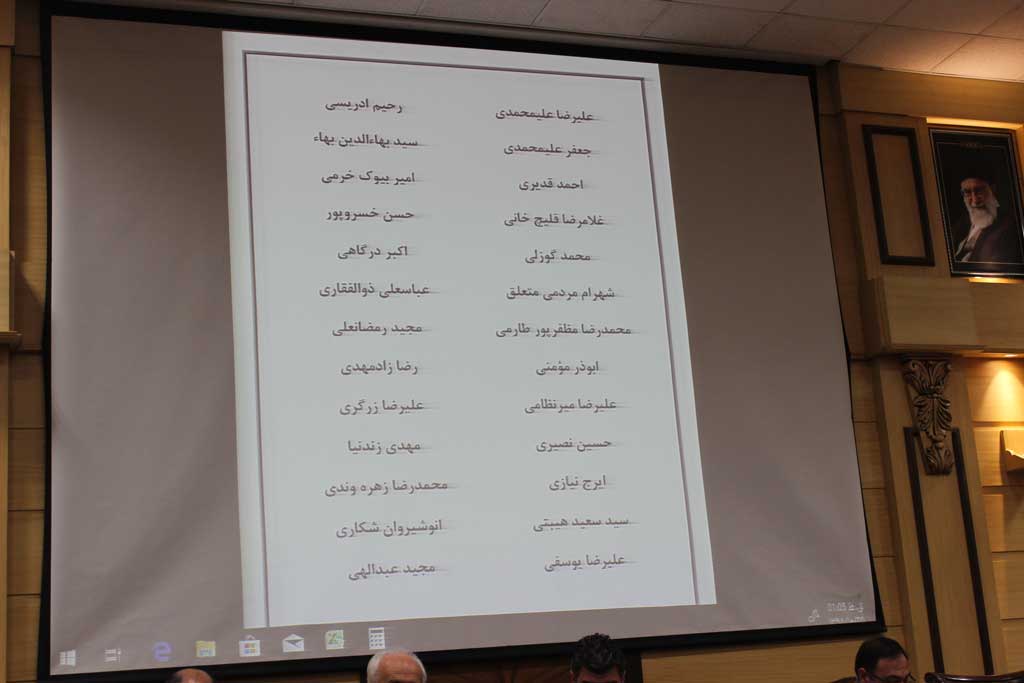 علیرضا علیمحمدی رحیم ادریسی
جعفر علیمحمدی سید بهاءالدین بهاء
احمد قدیری امیر بیوک خرمی
غلامرضا قلیچ خانی حسن خسروپور
محمد گوزلی اکبر درگاهی
شهرام مردمی متعلق عباسعلی ذوالفقاری
محمدرضا مظفرپور طارمی مجید رمضانعلی
ابوذر مؤمنی رضا زادمهدی
علیرضا میرنظامی علیرضا زرگری
حسین نصیری مهدی زندنیا
ایرج نیازی محمدرضا زهره وندی
سید سعید هیبتی انوشیروان شکاری
علیرضا یوسفی مجید عبدالهی
01:05